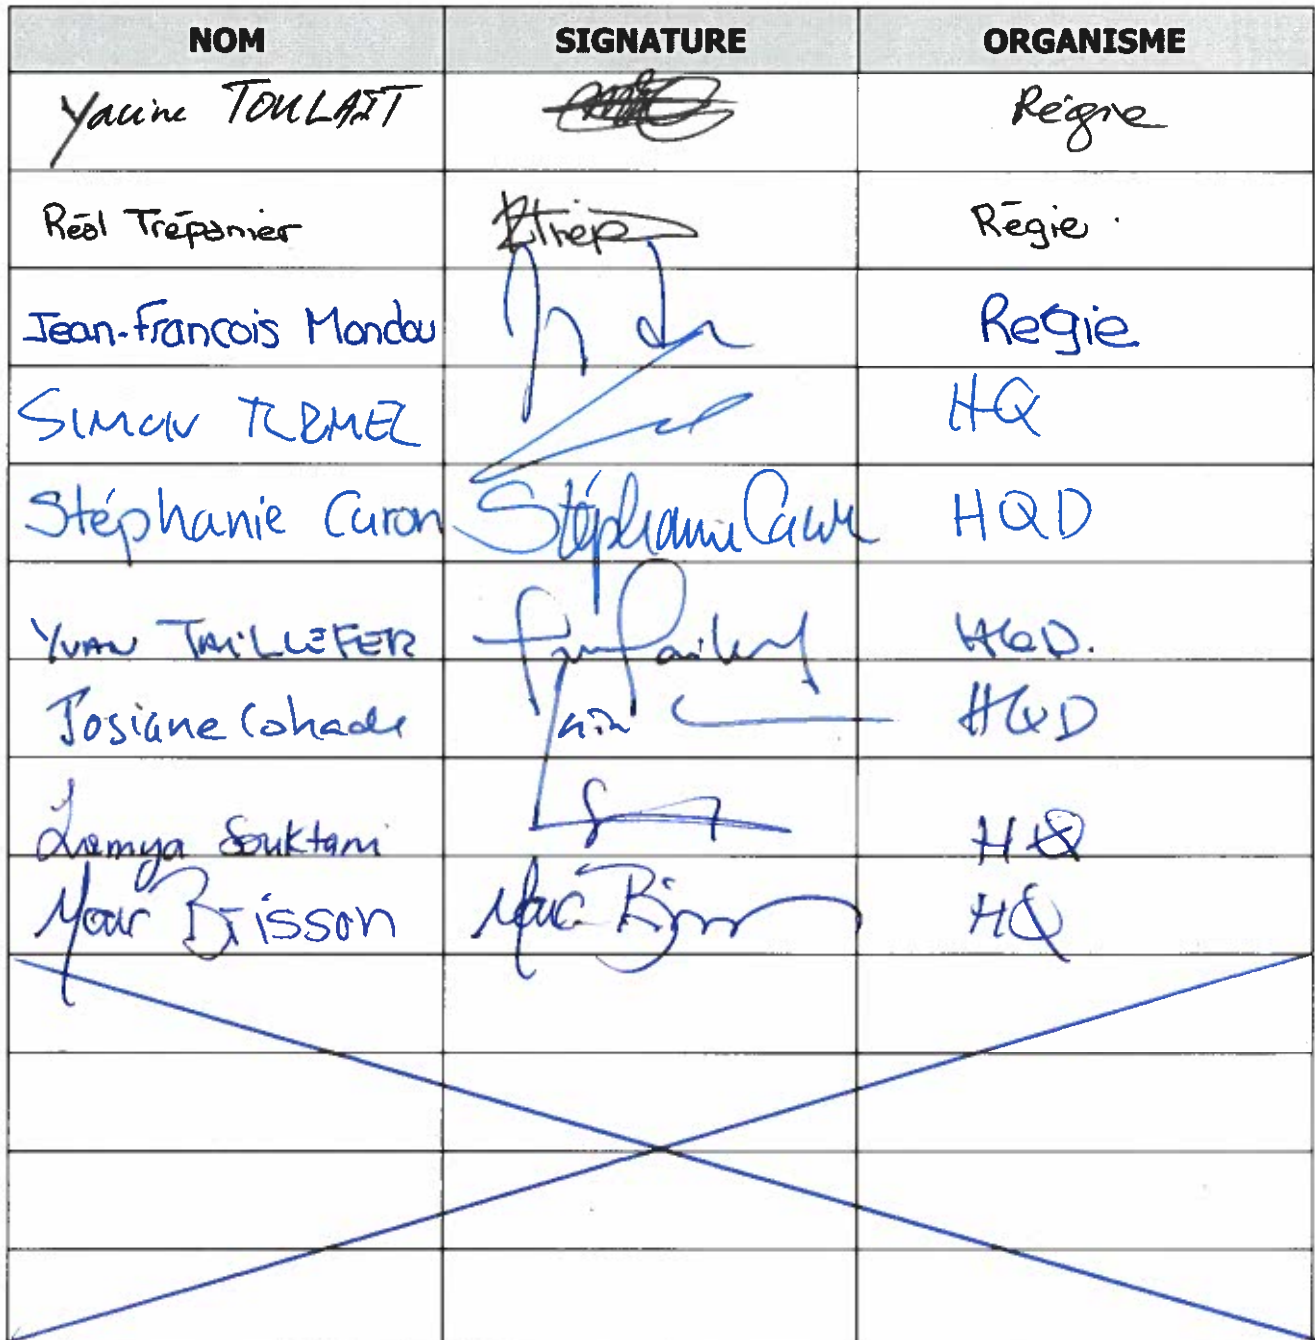 NOM SIGNATURE ORGANISME
Yacine TOULAIT Régie
Réal Trépanier RTrép Régie
Jean-François Mondou Régie
Simon TURMEL HQ
Stéphanie Caron Stéphanie Caron HQD
YVAN TAILLEFER Yvan Taillefer HQD.
Josiane Cohade HQD
Lamya Souktani HQ
Marc Brisson Marc Brisson HQ